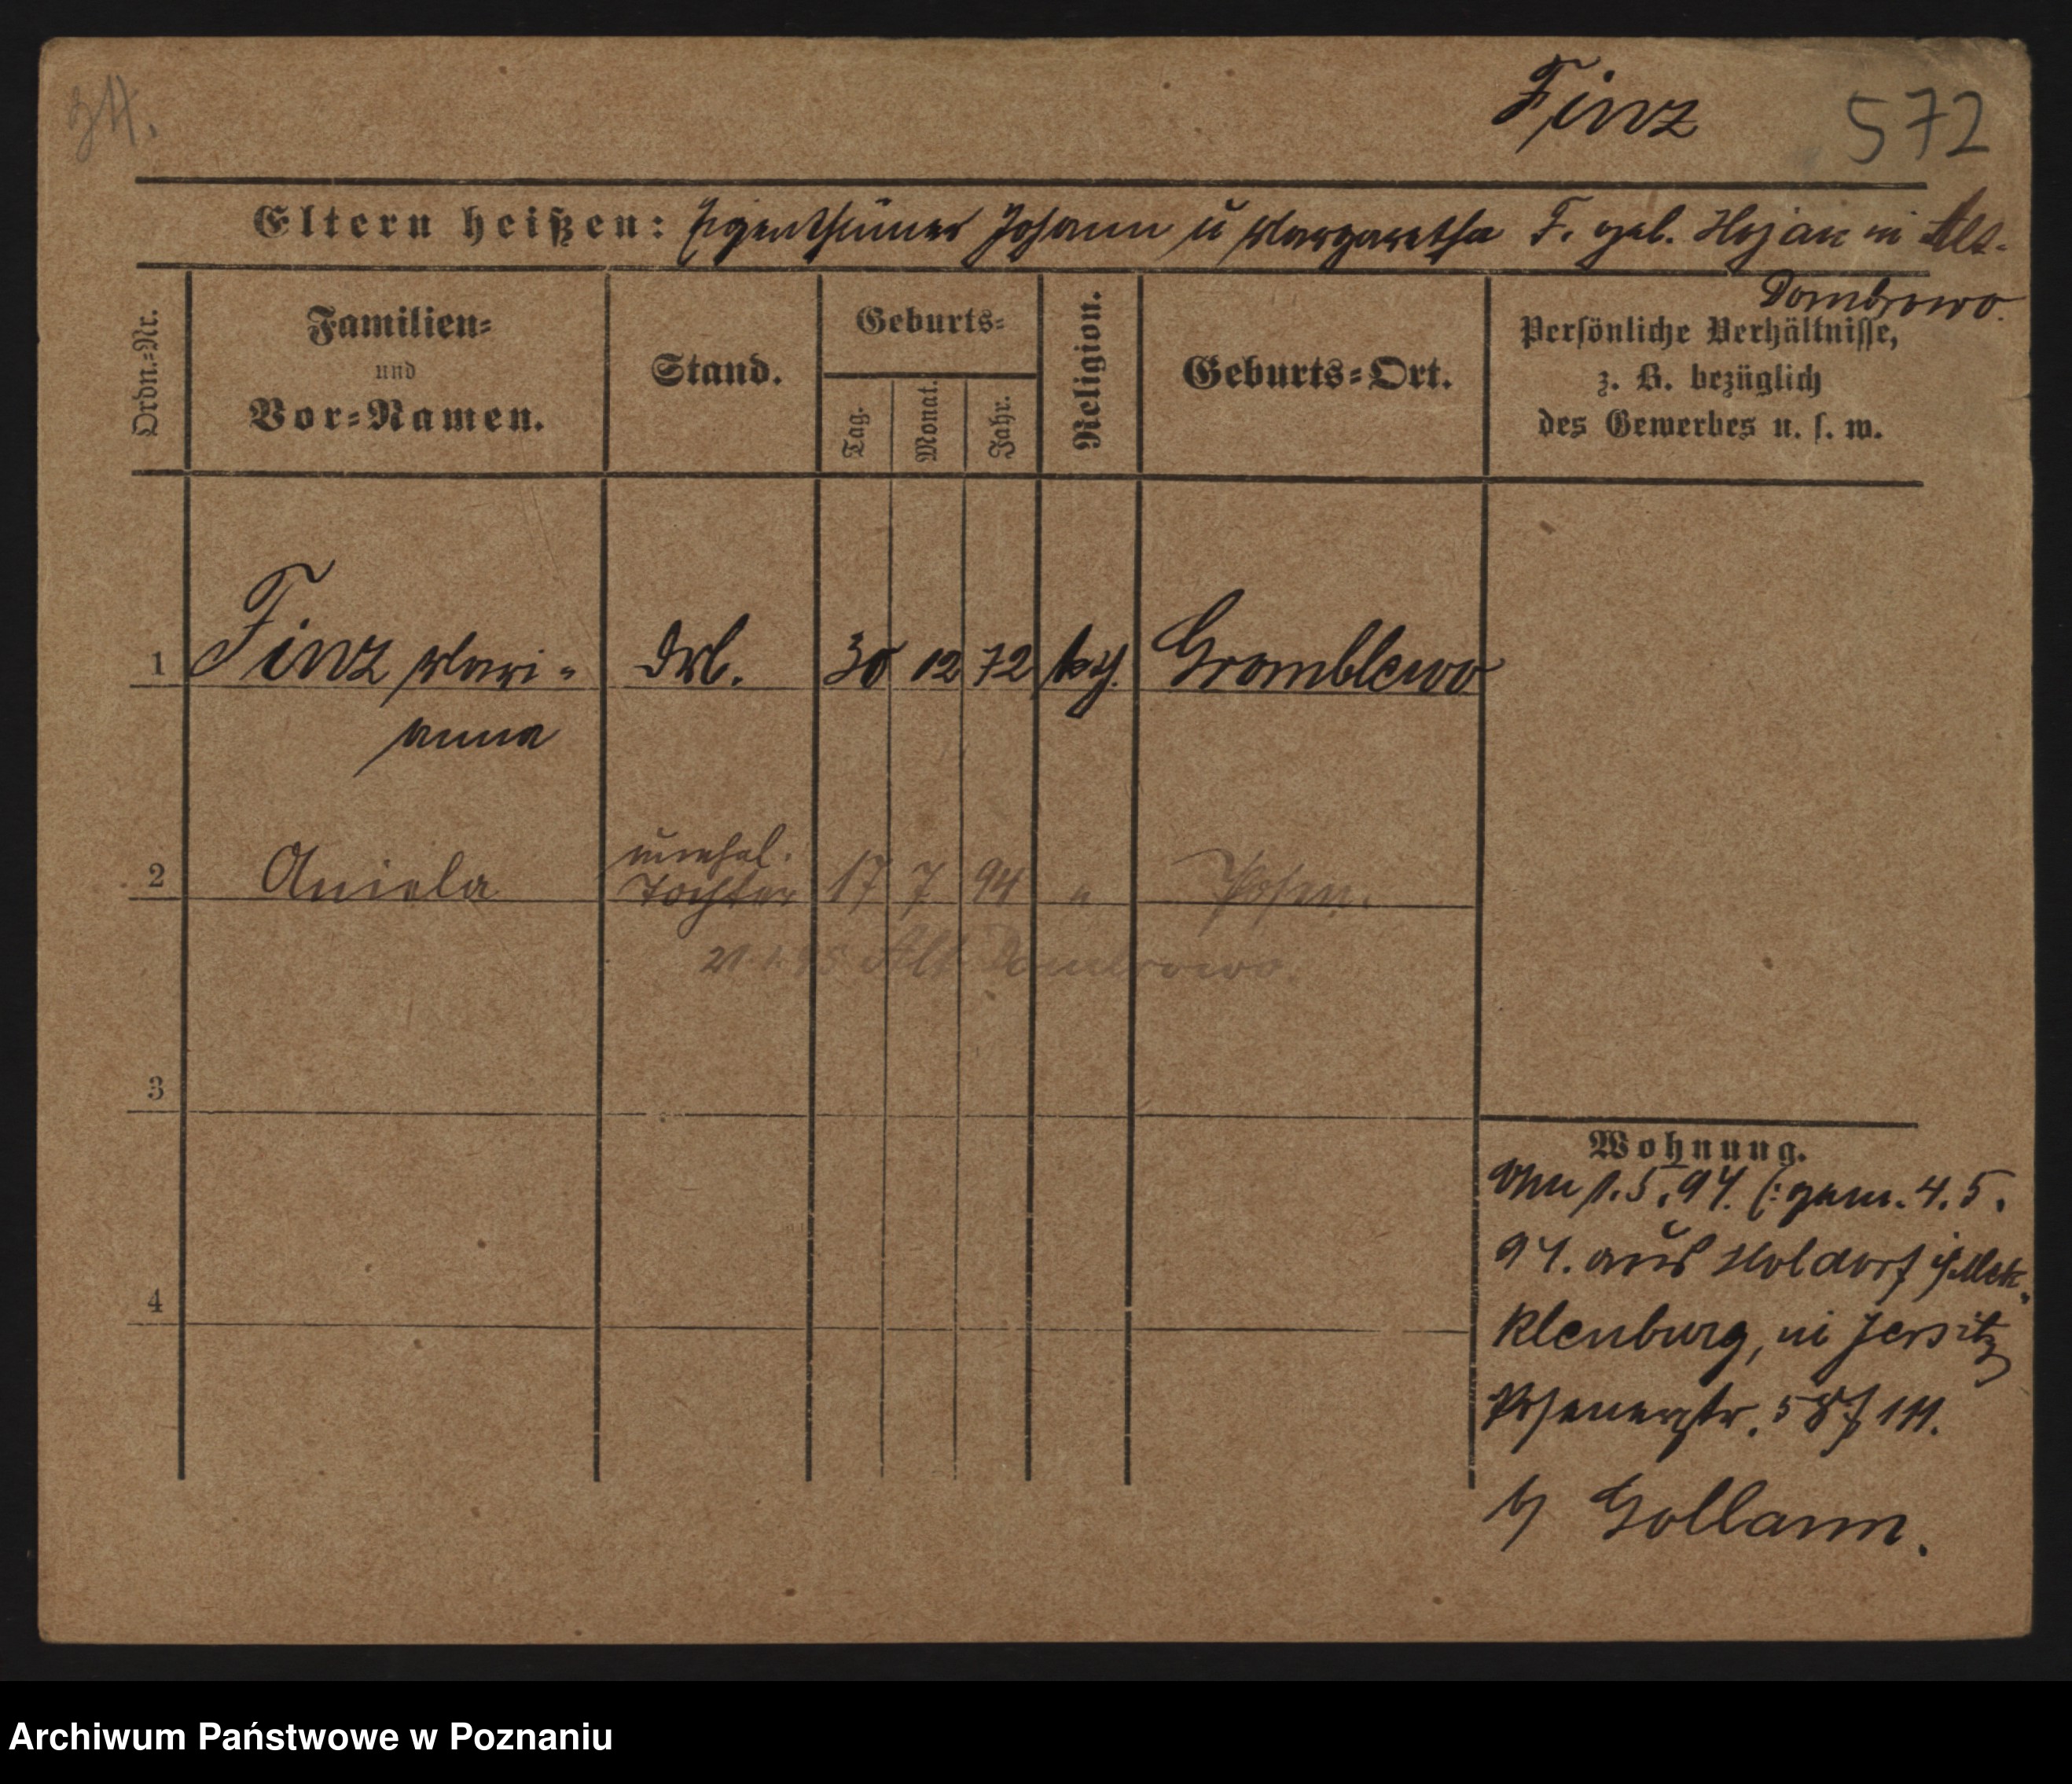 Finz 572
Eltern heißen: Eigenthümer Johann u Margaretha F. geb. Hojan in Alt-
Dombrowo.
Ordn.-Nr.
Familien-
und
Vor-Namen.
Stand.
Geburts-
Tag.
Monat.
Jahr.
Religion.
Geburts-Ort.
Persönliche Verhältnisse,
z. B. bezüglich
des Gewerbes u. s. w.
1 Finz Mari- Arb. 30 12 72 kth. Gromblewo
anna
unehel.
2 Aniela Tochter 17 7 94 " Posen.
Alt Dombrowo.
3
4
Wohnung.
Von 1.5.94. (: gem. 4.5.
94. aus Holdorf i/Mek-
klenburg, in Jersitz
Posenerstr. 58 III.
b/ Gollann.
Archiwum Państwowe w Poznaniu